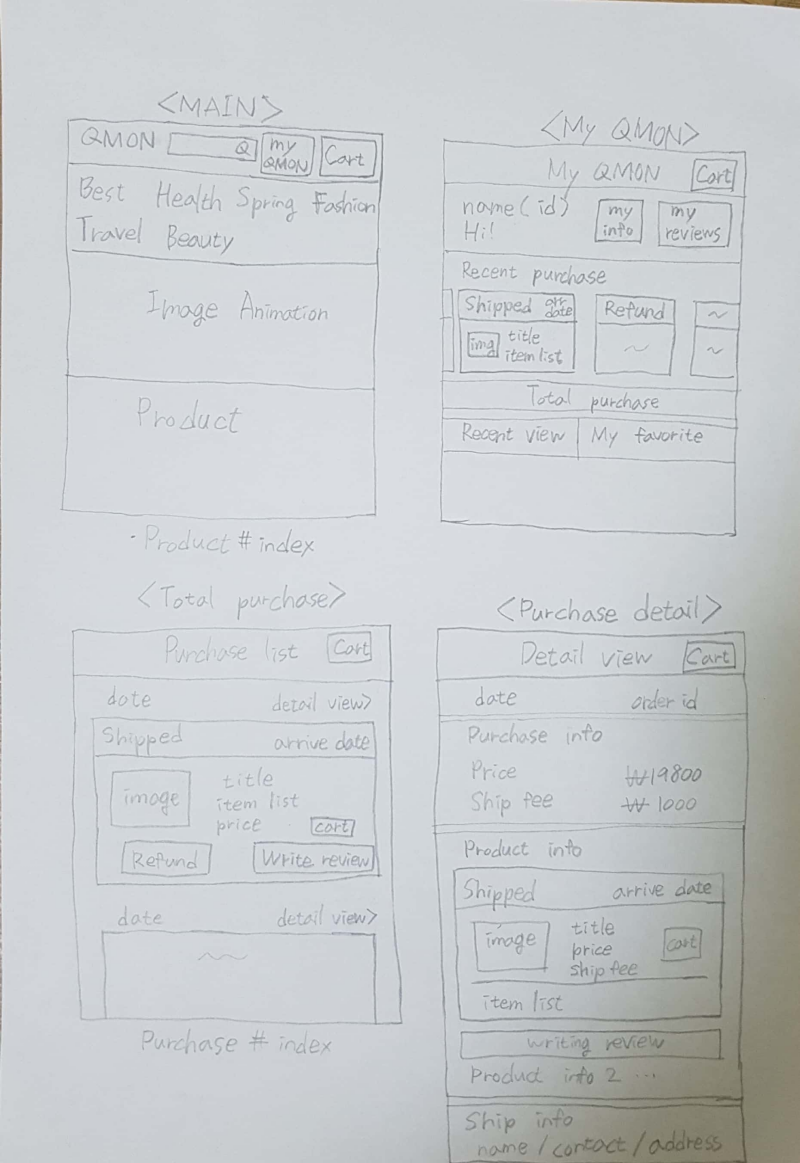 <MAIN>
QMON Q my QMON Cart
Best Health Spring Fashion
Travel Beauty
Image Animation
Product
· Product # index
<My QMON>
My QMON Cart
name (id) my info my reviews
Hi!
Recent purchase
Shipped arr date Refund ~
img title ~ ~
item list
Total purchase
Recent view My favorite
<Total purchase>
Purchase list Cart
date detail view>
Shipped arrive date
image title
item list
price cart
Refund Write review
date detail view>
~~
Purchase # index
<Purchase detail>
Detail view Cart
date order id
Purchase info
Price ₩19800
Ship fee ₩ 1000
Product info
Shipped arrive date
image title
price cart
ship fee
item list
writing review
Product info 2 ...
Ship info
name / contact / address